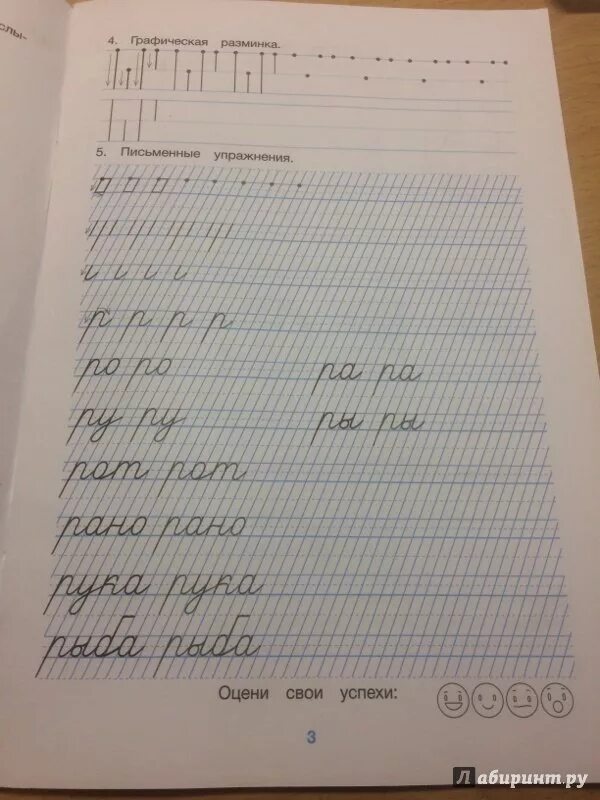 слы-
4. Графическая разминка.
5. Письменные упражнения.
р р р р
ро ро ра ра
ру ру ры ры
рот рот
рано рано
рука рука
рыба рыба
Оцени свои успехи:
3
Лабиринт.ру